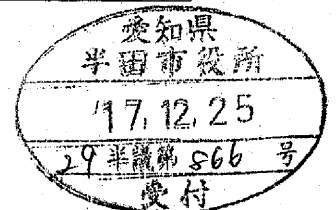 愛知県
半田市役所
'17.12.25
29半議第866号
受付